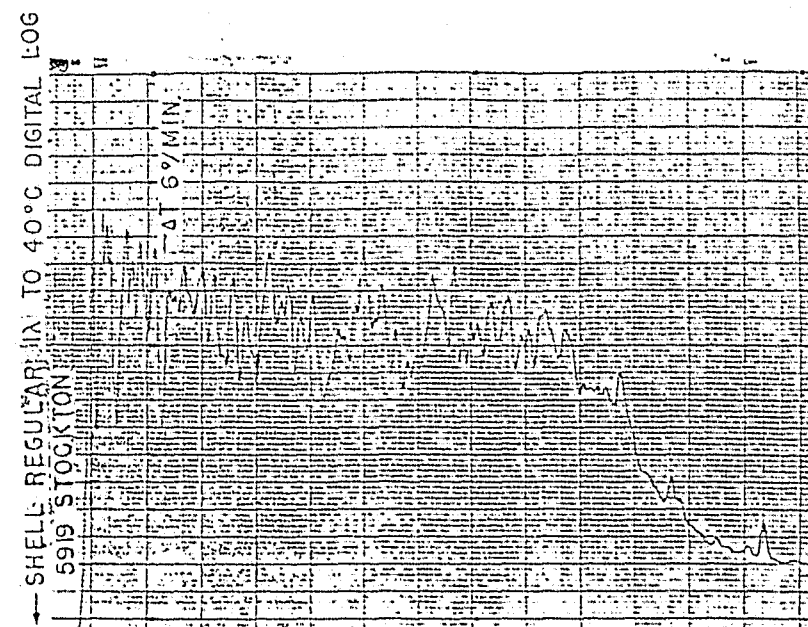 ← SHELL REGULAR 1λ TO 40°C DIGITAL LOG
5919 STOCKTON
ΔT 6°/MIN